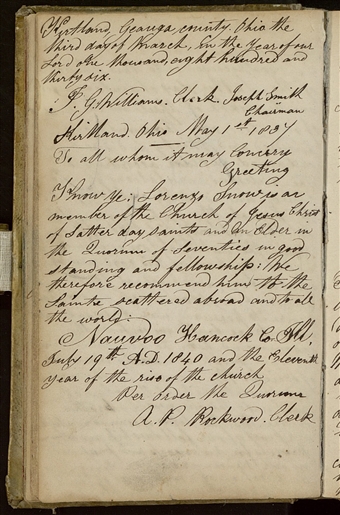 Kirtland, Geauga county, Ohio the
third day of March, in the year of our
Lord one thousand, eight hundred and
thirty six.
F. G. Williams. Clerk. Joseph Smith
Chairman
Kirtland. Ohio May 1st 1837
To all whom it may Concern
Greeting
Know Ye: Lorenzo Snow is a
member of the Church of Jesus Christ
of Latter day Saints and an Elder in
the Quorum of Seventies in good
standing and fellowship: We
therefore recommend him to the
Saints scattered abroad and to all
the world:
Nauvoo Hancock Co. Ill,
July 19th A.D. 1840 and the Eleventh
year of the rise of the church
Per order the Quorum
A. P. Rockwood. Clerk